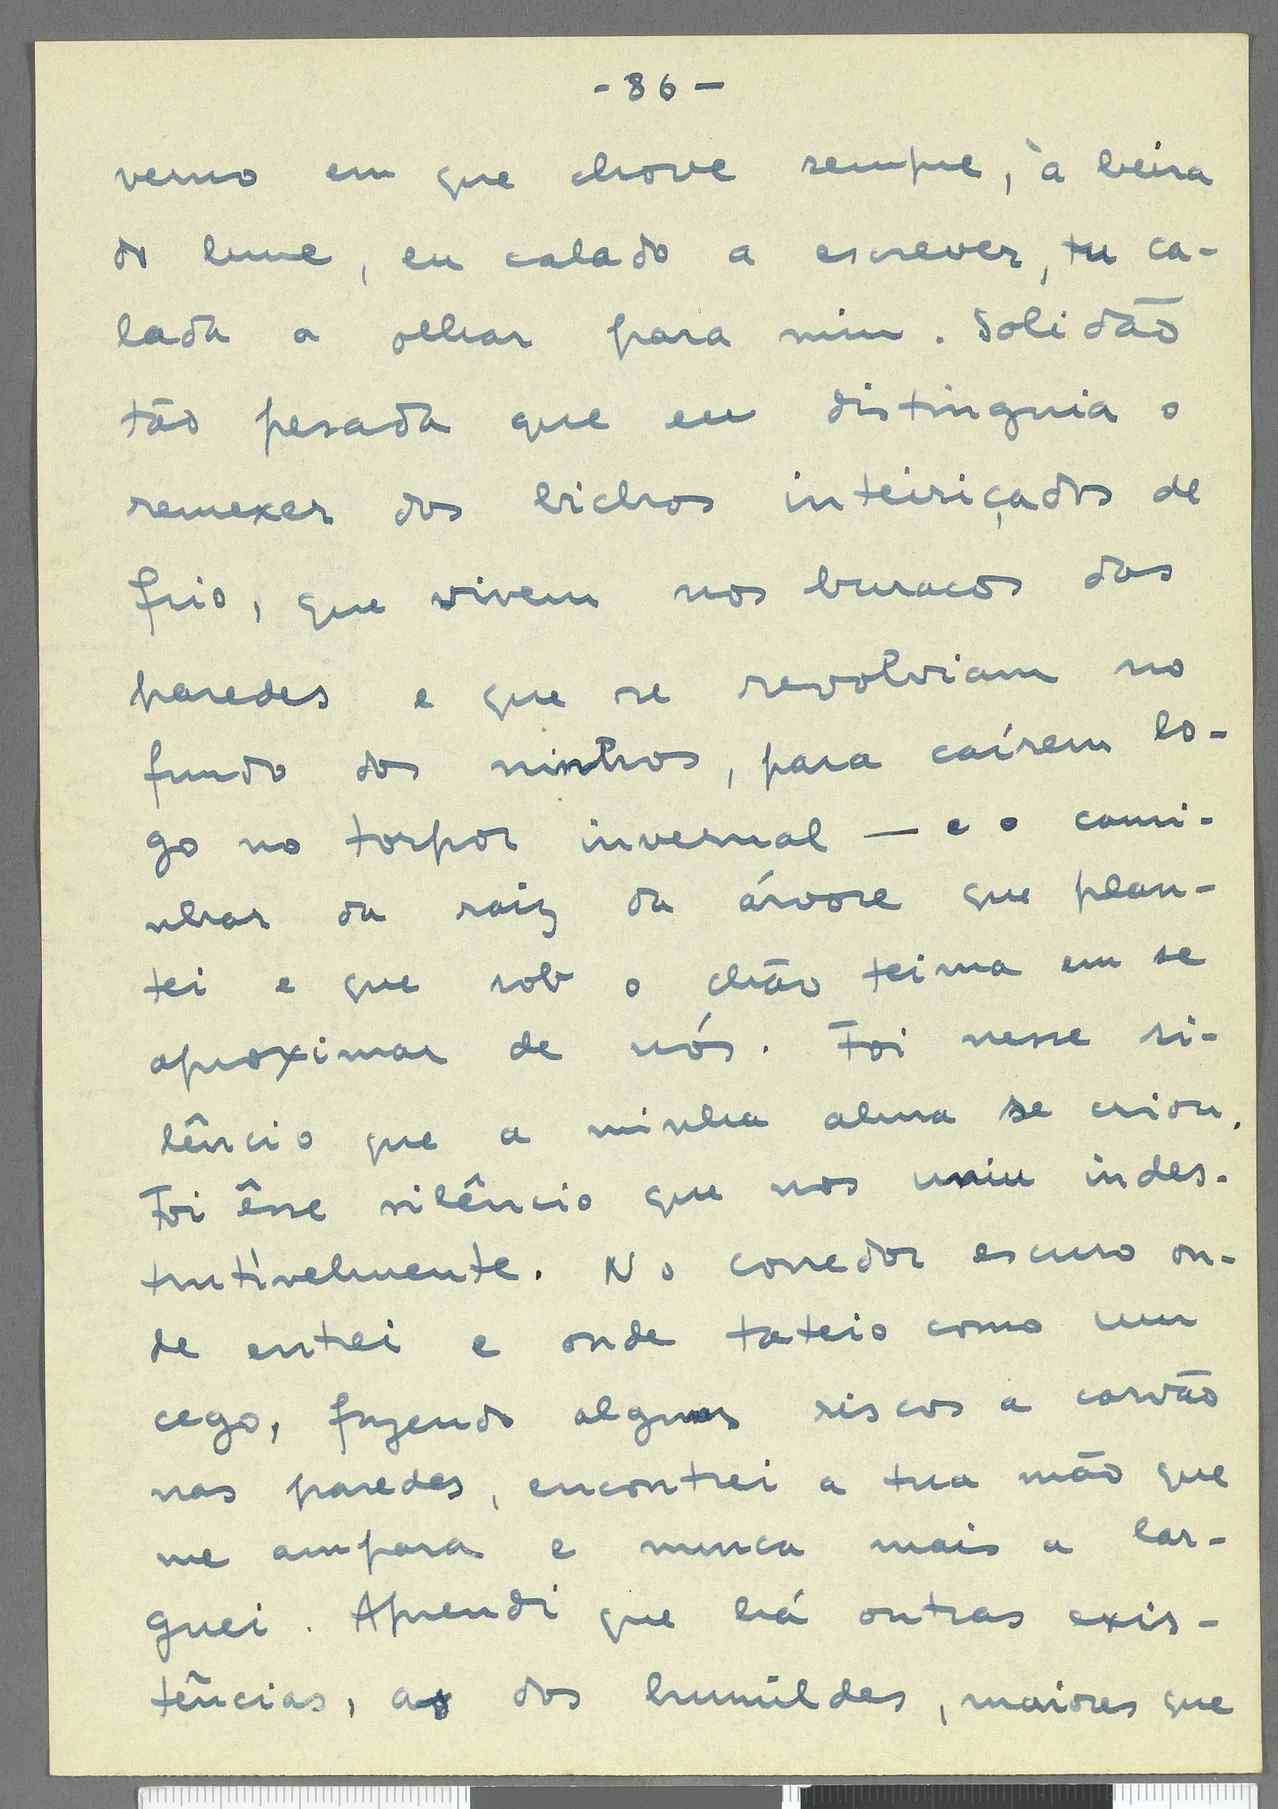 - 86 -
verno em que chove sempre, à beira
do lume, eu calado a escrever, tu ca-
lada a olhar para mim. Solidão
tão pesada que eu distinguia o
remexer dos bichos inteiriçados de
frio, que vivem nos buracos das
paredes e que se revolviam no
fundo dos ninhos, para caírem lo-
go no torpor invernal — e o cami-
nhar da raiz da árvore que plan-
tei e que sob o chão teima em se
aproximar de nós. Foi nesse si-
lêncio que a minha alma se criou.
Foi êsse silêncio que nos uniu indes-
trutìvelmente. No corredor escuro on-
de entrei e onde tateio como um
cego, fazendo alguns riscos a carvão
nas paredes, encontrei a tua mão que
me ampara e nunca mais a lar-
guei. Aprendi que há outras exis-
tências, as dos humildes, maiores que